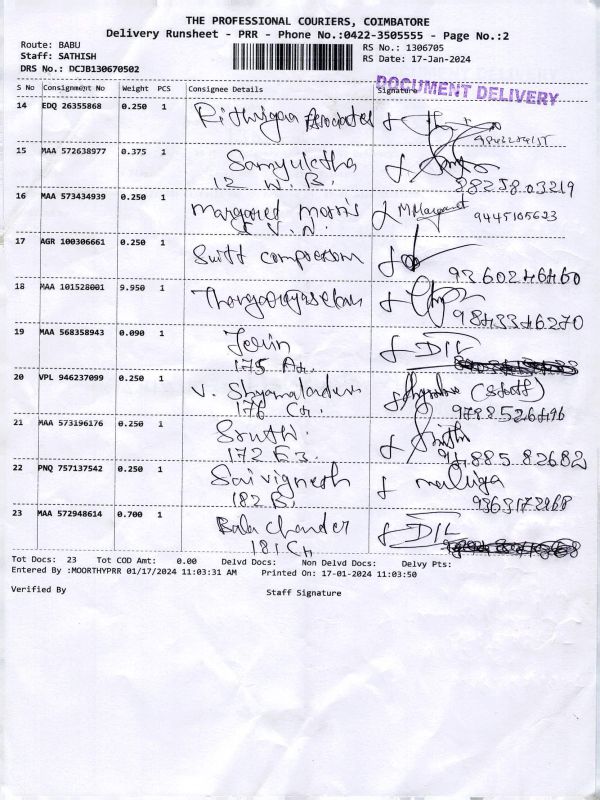 THE PROFESSIONAL COURIERS, COIMBATORE
Delivery Runsheet - PRR - Phone No.:0422-3505555 - Page No.:2
Route: BABU
Staff: SATHISH
DRS No.: DCJB130670502
RS No.: 1306705
RS Date: 17-Jan-2024
DOCUMENT DELIVERY
S No Consignment No Weight PCS Consignee Details Signature
14 EDQ 26355868 0.250 1 Rithvigaa Associates
15 MAA 572638977 0.375 1 Samyuktha
12 W. B. 88258 03219
16 MAA 573434939 0.250 1 margared morris M Margaret 9445105623
17 AGR 100306661 0.250 1 Swift compressom
9360246460
18 MAA 101528001 9.950 1
9843346270
19 MAA 568358943 0.090 1 Jevin DIL
175 A4.
20 VPL 946237099 0.250 1 V. Shyamaladevi (Staff)
176 C4. 9788526496
21 MAA 573196176 0.250 1 Sruthi. Sruthi
172 E3. 94885 82682
22 PNQ 757137542 0.250 1 Sai vignesh
182 B. 9363172968
23 MAA 572948614 0.700 1 Bala Chander DIL
181 C4
Tot Docs: 23 Tot COD Amt: 0.00 Delvd Docs: Non Delvd Docs: Delvy Pts:
Entered By :MOORTHYPRR 01/17/2024 11:03:31 AM Printed On: 17-01-2024 11:03:50
Verified By Staff Signature